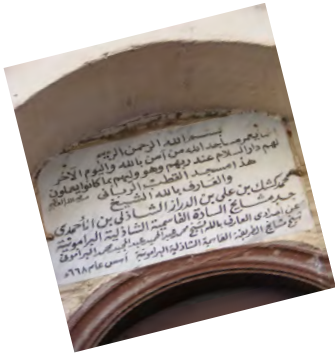 بسم الله الرحمن الرحيم
إنما يعمر مساجد الله من آمن بالله واليوم الآخر
لهم دار السلام عند ربهم وهو وليهم بما كانوا يعملون
هذا مسجد القطب الرباني
والعارف بالله الشيخ
محمد كشك بن علي بن الدراز الشاذلي بن الأحمدي
جد مشايخ السادة القاسمية الشاذلية البرامونية
عن العارف بالله الشيخ محمد البراموني
شيخ مشايخ الطريقة القاسمية الشاذلية البرامونية أسس عام ٦٦٨ هـ